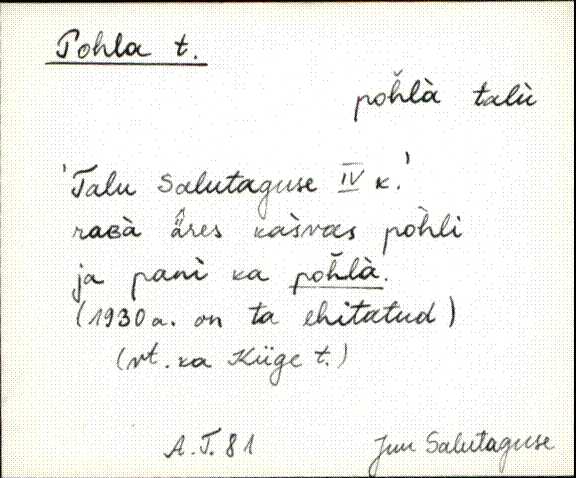 Pohla t.
poȟlà talù
'Talu Salutaguse IV k.'
rabà äres kàsvas pòhli
ja panì ka poȟlà.
(1930 a. on ta ehitatud)
(vt. ka Küge t.)
A.T. 81 Juu Salutaguse